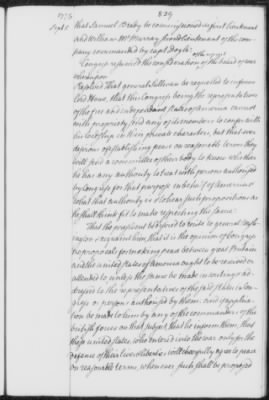 1776 829
Sept. 5 that Samuel Brady be commissioned first lieutenant
and William McMurray second lieutenant of the com
pany commanded by capt Doyle.
Congress resumed the consideration of the report of the board of war
whereupon
Resolved That general Sullivan be requested to inform
lord Howe, that this Congress being the representatives
of the free and independant states of America cannot
with propriety send any of its members to confer with
his lordship in their private characters, but that ever
desirous of establishing peace on reasonable terms they
will send a committee of their body to know whether
he has any authority to treat with persons authorised
by Congress for that purpose in behalf of America &
what that authority is & to hear such propositions as
he shall think fit to make respecting the same:
That the president be desired to write to general Wash-
ington & acquaint him, that it is the opinion of Congress
no proposals for making peace between great Britain
and the united states of America ought to be received or
attended to unless the same be made in writing & ad-
dressed to the representatives of the said states in Con-
gress or persons authorised by them: And if applica-
tion be made to him by any of the commanders of the
british forces on that subject that he inform them, that
these united states, who entered into the war only for the
defence of their lives & liberties will chearfully agree to peace
on reasonable terms, whenever such shall be proposed